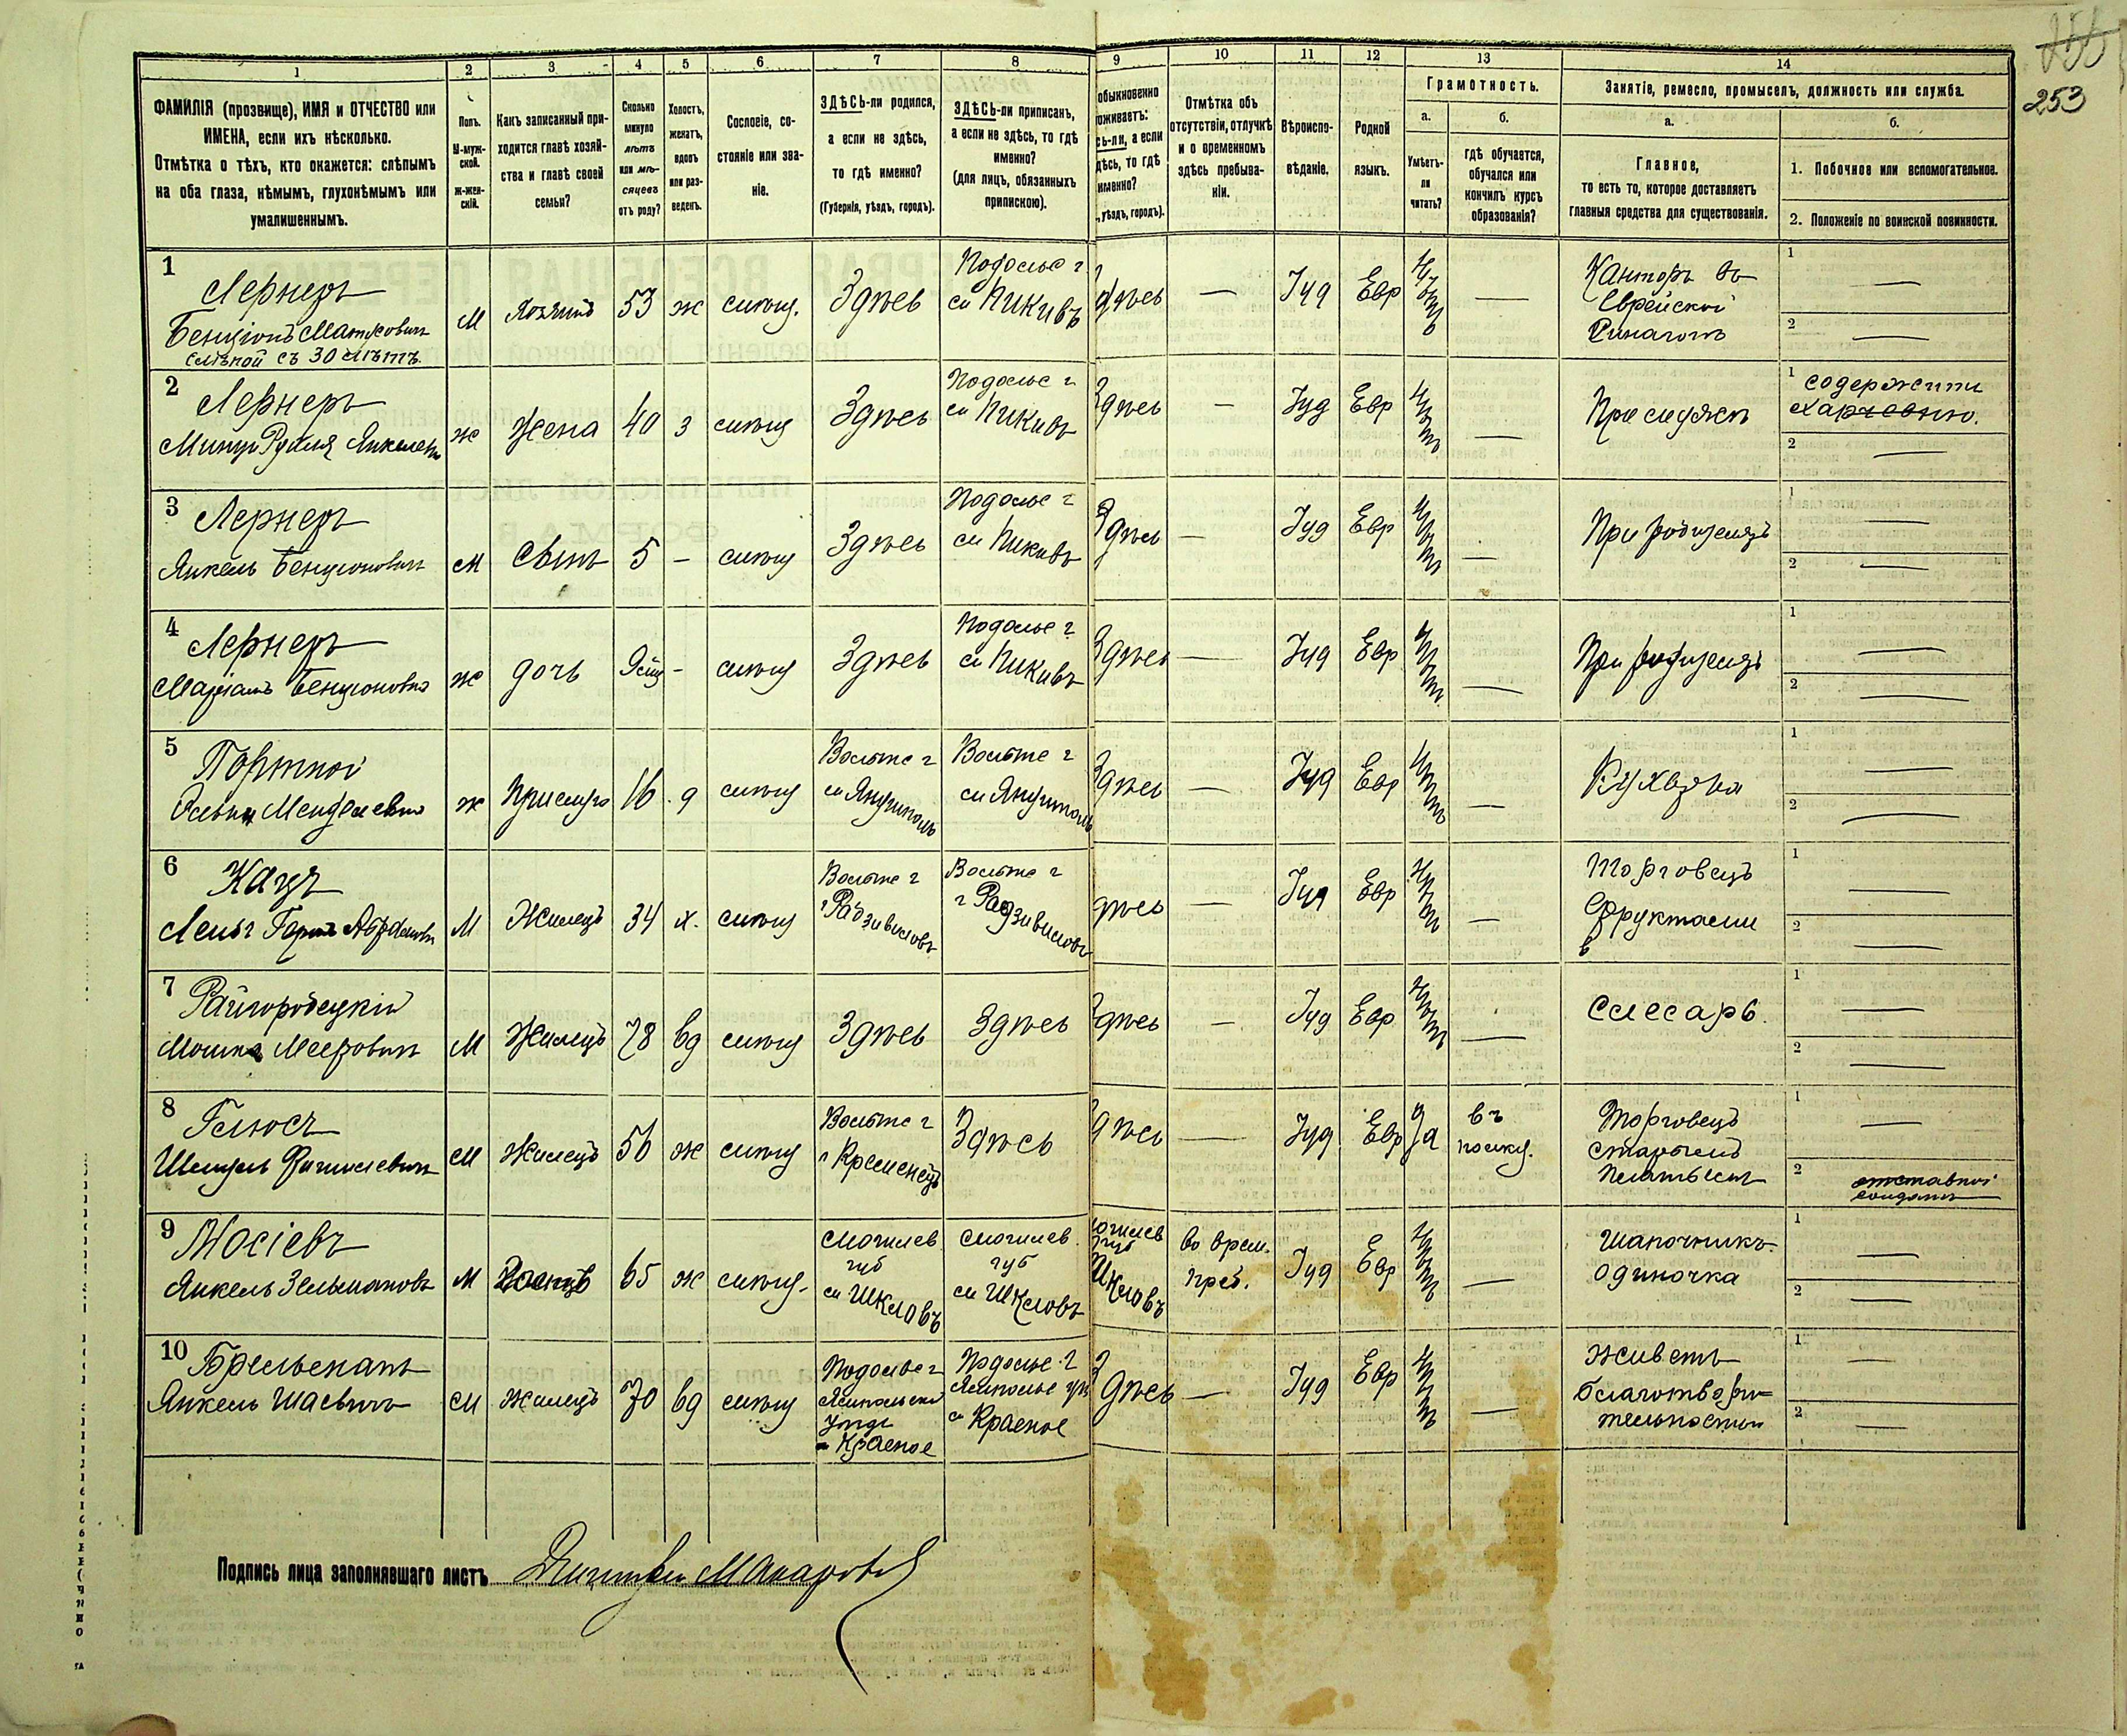 253
1 2 3 4 5 6 7 8 9 10 11 12 13 14
ФАМИЛІЯ (прозвище), ИМЯ и ОТЧЕСТВО или
ИМЕНА, если ихъ нѣсколько.
Отмѣтка о тѣхъ, кто окажется: слѣпымъ
на оба глаза, нѣмымъ, глухонѣмымъ или
умалишеннымъ.
Полъ.
М-муж-
ской.
ж-жен-
скій.
Какъ записанный при-
ходится главѣ хозяй-
ства и главѣ своей
семьи?
Сколько
минуло
лѣтъ
или мѣ-
сяцевъ
отъ роду?
Холостъ,
женатъ,
вдовъ
или раз-
веденъ.
Сословіе, со-
стояніе или зва-
ніе.
ЗДѢСЬ-ли родился,
а если не здѣсь,
то гдѣ именно?
(Губернія, уѣздъ, городъ).
ЗДѢСЬ-ли приписанъ,
а если не здѣсь, то гдѣ
именно?
(для лицъ, обязанныхъ
припискою).
обыкновенно
оживаетъ:
сь-ли, а если
дѣсь, то гдѣ
именно?
, уѣздъ, городъ).
Отмѣтка объ
отсутствіи, отлучкѣ
и о временномъ
здѣсь пребыва-
ніи.
Вѣроиспо-
вѣданіе.
Родной
языкъ.
Грамотность.
а.
Умѣетъ-
ли
читать?
б.
гдѣ обучается,
обучался или
кончилъ курсъ
образованія?
Занятіе, ремесло, промыселъ, должность или служба.
а.
Главное,
то есть то, которое доставляетъ
главныя средства для существованія.
б.
1. Побочное или вспомогательное.
2. Положеніе по воинской повинности.
1
Лернеръ
Бенціонъ Матусовичъ
слѣпой съ 30 лѣтъ
М Хозяинъ 53 ж мѣщ. Здѣсь
Подольс г
м Пиковъ
Здѣсь — Іуд Евр нѣтъ —
Канторъ въ
Еврейской
Синагогѣ
1 —
2 —
2
Лернеръ
ж Жена 40 з мѣщ Здѣсь
Подольс г
м Пиковъ
Здѣсь — Іуд Евр нѣтъ —
При мужѣ
1 содержитъ
харчевню.
2 —
3
Лернеръ
Янкель Бенціоновичъ
М Сынъ 5 – мѣщ Здѣсь
Подольс г
м Пиковъ
Здѣсь — Іуд Евр нѣтъ —
При родителяхъ
1 —
2 —
4
Лернеръ
Маріамъ Бенціоновна
ж дочь – мѣщ Здѣсь
Подольс г
м Пиковъ
Здѣсь — Іуд Евр нѣтъ —
При родителяхъ
1 —
2 —
5
Портной
Менделевна
ж Прислуга 16 д мѣщ
Волынс г
м Янушполь
Волынс г
м Янушполь
Здѣсь — Іуд Евр нѣтъ —
Кухарка
1 —
2 —
6
Кацъ
М Жилецъ 34 х. мѣщ
Волынс г
г Радзивиловъ
Волынс г
г Радзивиловъ
Здѣсь — Іуд Евр нѣтъ —
Торговецъ
фруктами
1 —
2 —
7
Райгородецкій
Мошка Мееровичъ
М Жилецъ 78 вд мѣщ Здѣсь Здѣсь
Здѣсь — Іуд Евр нѣтъ —
Слесарь.
1 —
2 —
8
М Жилецъ 56 ж мѣщ
Волынс г
г Кременецъ
Здѣсь
Здѣсь — Іуд Евр Да
въ
полку.
Торговецъ
старымъ
платьемъ
1 —
2 отставной
солдатъ
9
Мосіевъ
Янкель Зельмановъ
М 65 ж мѣщ.
Могилев.
губ
м Шкловъ
Могилев.
губ
м Шкловъ
огилев
губ
Шкловъ
во врем.
преб.
Іуд Евр нѣтъ —
Шапочникъ.
одиночка
1 —
2 —
10
Янкель
М Жилецъ 70 вд мѣщ
Подольс г
уѣзд
м Красное
Подольс г
м Красное
Здѣсь — Іуд Евр нѣтъ —
Живетъ
благотвори-
тельностью
1 —
2 —
Подпись лица заполнявшаго листъ